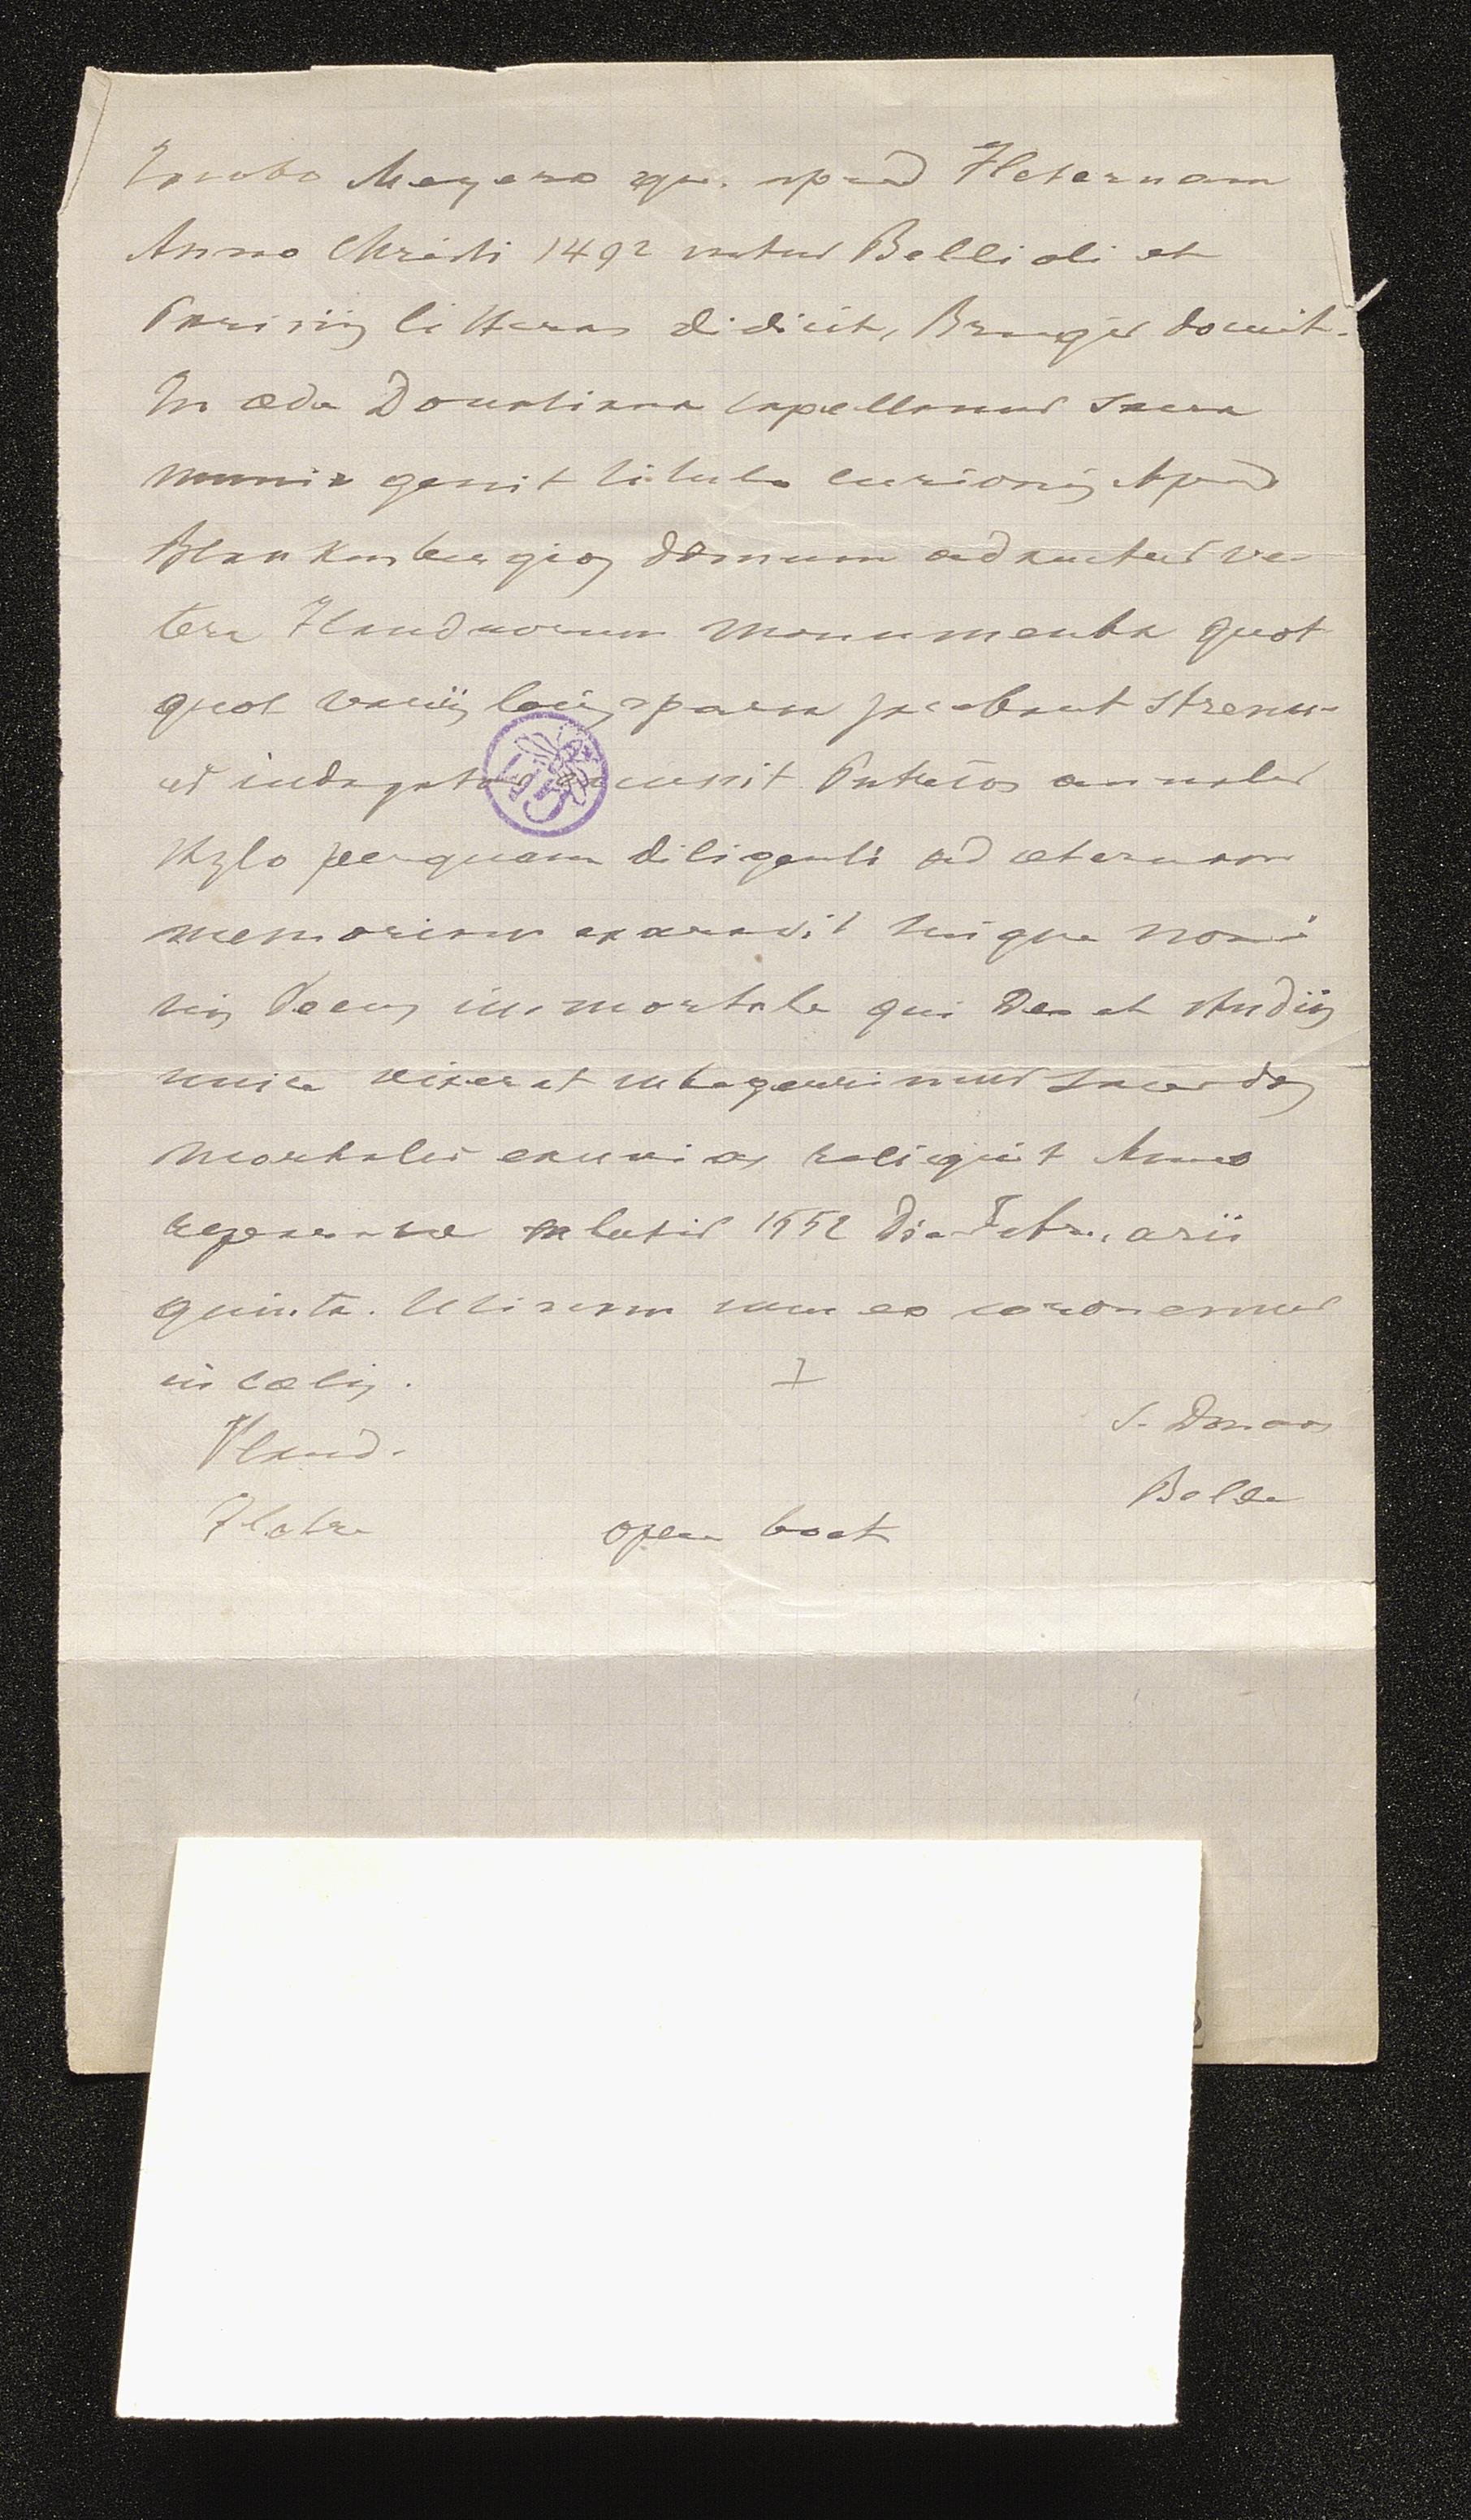 Iacobo Meyero qui apud Fleternam
Anno Christi 1492 natus Bellioli et
Parisiis litteras didicit, Brugis docuit.
In æde Donatiana capellanus sacra
munia gessit titulo curionis Apud
Blankenbergios domum adnactus ve
tera Flandrorum monumenta quot
quot variis locis sparsa jacebant strenu-
us indagator excussit Patrios annales
stylo perquam diligenti ad æternam
memoriam exaravit suique nomi
nis decus immortale qui Deo et studiis
unice vixerat integerrimus sacerdos
mortales exuvias reliquit Anno
reparatæ salutis 1552 die Februarii
quinta. Utinam cum eo coronemur
in cælis.
Vland.
S. Donaas
Belle
Fletre
open boek